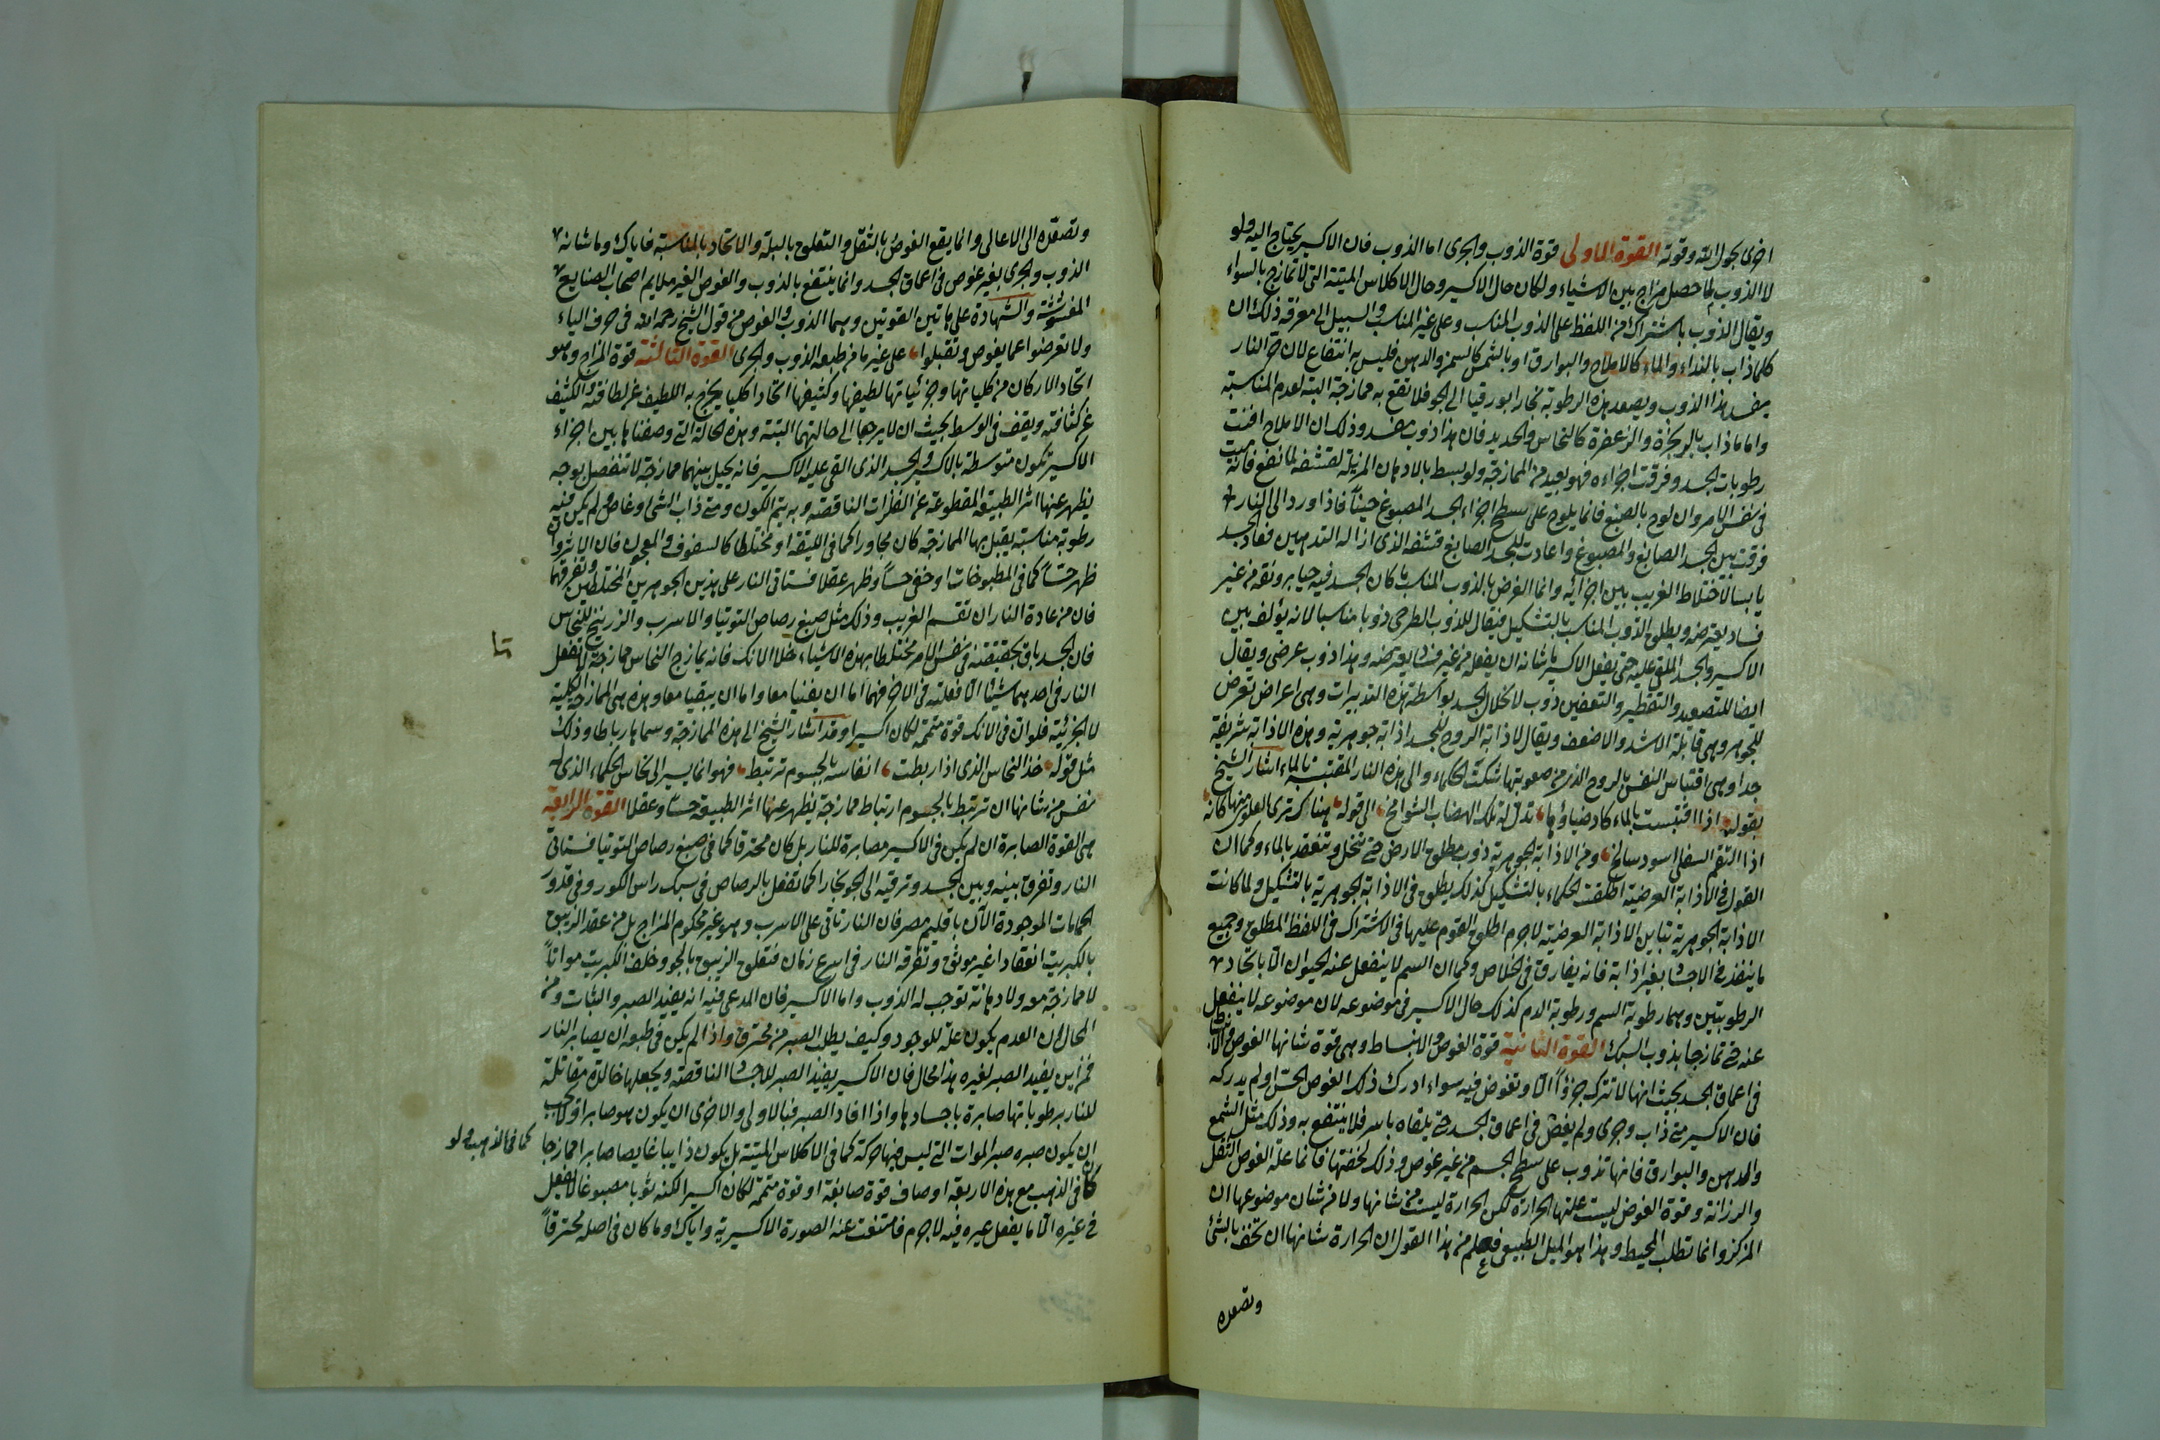 اخرى بحول الله وقوته القوة الاولى قوة الذوب والجرى اما الذوب فان الاكسير يحتاج اليه ولو
لا الذوب لما حصل مزاج بين الاشياء ولكان حال الاكسير وحال الاكلاس الميتة التى لا تمازج بالسواء
ويقال الذوب باشتراك من اللفظ على الذوب المناسب وعلى غير المناسب والسبيل الى معرفة ذلك ان
كلما ذاب بالنداء والماء كالاملاح والبوارق او بالشمس كالسمن والدهن فليس به انتفاع لان حر النار
يفسد هذا الذوب ويصعد هذه الرطوبة بخارا بورقيا الى الجو فلا تقع به ممازجة البتة لعدم المناسبة
واما ما ذاب بالزعفرة كالنحاس والحديد فان هذا ذوب مفسد وذلك ان الاملاح افنت
رطوبات الجسد وفرقت اجزاءه فهو بعيد من الممازجة ولو بسط بالادهان المزيلة لقشفه لما نفع فانه ميت
فى نفس الامر وان لوح بالصبغ فانما يلوح على سطح اجزاء الجسد المصبوغ حينا فاذا ورد الى النار
فرقت بين الجسد الصابغ والمصبوغ واعادت للجسد الصابغ قشفه الذى ازاله التدهين فعاد الجسد
يابسا لاختلاط الغريب بين اجزائه وانما الغرض بالذوب المناسب ما كان الجسد فيه حيا برونقه من غير
فساد يعترضه ويطلق الذوب المناسب بالتشكيل فيقال للذوب الطرحى ذوبا مناسبا لانه يؤلف بين
الاكسير والجسد الملقى عليه حتى يفعل الاكسير ما شانه ان يفعل من غير فساد يعترضه وهذا ذوب عرضى ويقال
ايضا للتصعيد والتقطير والتعفين ذوب لانحلال الجسد بواسطة هذه التدبيرات وهى اعراض تعرض
للجوهر وهى قابلة الاشد والاضعف ويقال لاذابة الروح للجسد اذابة جوهرية وهذه الاذابة شريفة
جدا وهى اقتباس النفس بالروح الذى من صعوبتها شكت الحكماء والى هذه النار المقتبسة بالماء اشار الشيخ
بقوله اذا اقتبست بالماء كاد ضياؤها تدك له تلك الهضاب الشوامخ الى قوله هناك ترى العلوى منها كانه
اذا التقم السفلى اسود سالخ ومن الاذابة الجوهرية ذوب مطلق الارض حتى تنحل وتنعقد بالماء وكما ان
القول فى الاذابة العرضية اطلقت الحكماء بالتشكيل كذلك يطلق فى الاذابة الجوهرية بالتشكيل ولما كانت
الاذابة الجوهرية تباين الاذابة العرضية لاجرم اطلق القوم عليها فى الاشتراك فى اللفظ المطلق وجميع
ما ينفذ فى الاجساد بغير اذابة فانه يفارق فى الخلاص وكما ان السم لا ينفعل عنه الحيوان الا باتحاد
الرطوبتين وهما رطوبة السم ورطوبة الدم كذلك حال الاكسير فى موضوعه لان موضوعه لا ينفعل
عنه حتى تمازجا بذوب السبك القوة الثانية قوة الغوص والانبساط وهى قوة شانها الغوص والانبساط
فى اعماق الجسد بحيث انها لا تترك جزءا الا وتغوص فيه سواء ادرك ذلك الغوص الحس او لم يدركه
فان الاكسير متى ذاب وجرى ولم يغص فى اعماق الجسد حتى يلقاه باسره فلا ينتفع به وذلك مثل الشمع
والدهن والبوارق فانها تذوب على سطح الجسم من غير غوص وذلك لخفتها فانما علة الغوص الثقل
والرزانة وقوة الغوص ليست علتها الحرارة لكن الحرارة ليست من شانها ولا من شان موضوعها ان
المركز وانما تطلب المحيط وهذا هو الميل الطبيعى فعلم من هذا القول ان الحرارة شانها ان تخفف بالشئ
وتصعده
وتصعده الى الاعالى وانما يقع الغوص بالثقل والتعلق بالبلة والاتحاد بالمناسبة فاياك وما شانه
الذوب والجرى بغير غوص فى اعماق الجسد وانما ينتفع بالذوب والغوص الغير ملايم اصحاب الصنايع
المغشوشة والشهادة على هاتين القوتين وهما الذوب والغوص من قول الشيخ رحمه الله فى حرف الياء
ولا تعرضوا عما يغوص وتقبلوا على غير ما من طبعه الذوب والجرى القوة الثالثة قوة المزاج وهو
اتحاد الاركان من كلياتها وجزئياتها لطيفها وكثيفها اتحادا كليا يخرج به اللطيف عن لطافته والكثيف
عن كثافته ويقف فى الوسط بحيث ان لا يرجعا الى حالتهما البتة وهذه الحالة التى وصفناها بين اجزاء
الاكسير تكون متوسطة بالاكسير والجسد الذى القى عليه الاكسير فانه يحيل بينهما ممازجة لا تنفصل بوجه
يظهر عنها اثر الطبيعة المقطوعة عن الفلزات الناقصة وبه يتم الكون ومتى ذاب الشئ او غاص ولم يكن فيه
رطوبة مناسبة يقبل بها الممازجة كان مجاورا كما فى الليقة او مختلطا كالسفوف والمعجون فان الاثر وان
ظهر حسا كما فى المطبوخات او خفى حسا وظهر عقلا فستاتى النار على هذين الجوهرين المختلطين وتفرقهما
فان من عادة النار ان تقسم الغريب وذلك مثل صبغ رصاص التوتيا والاسرب والزرنيخ للنحاس
فان الجسد باق بحقيقته فى نفس الامر مختلطا بهذه الاشياء خلا الانك فانه يمازج النحاس ممازجة لا تفعل
النار فى احدهما شيئا الا فعلته فى الاخر فهما اما ان يفنيا معا واما ان يبقيا معا وهذه هى الممازجة الكلية
لا الجزئية فلو ان فى الانك قوة متممة لكان اكسيرا وقد اشار الشيخ الى هذه الممازجة وسماها رباطا وذلك
مثل قوله خذ النحاس الذى اذا ربطت انفاسه بالجسوم ترتبط فهو انما يشير الى نحاس الحكماء الذى له
نفس من شانها ان ترتبط بالجسوم ارتباط ممازجة يظهر عنها اثر الطبيعة حسا وعقلا القوة الرابعة
هى القوة الصابرة ان لم يكن فى الاكسير مصابرة للنار بل كان محترقا كما فى صبغ رصاص التوتيا فستاتى
النار وتفرق بينه وبين الجسد وترقيه الى الجو بخارا كما تفعل بالرصاص فى سبك راس الكور وفى قدور
الحمامات الموجودة الآن باقليم مصر فان النار تاتى على الاسرب وهو غير محكوم المزاج بل من عقد الزيبق
بالكبريت انعقادا غير موثق وتفرقه النار فى اسرع زمان فتعلق الزيبق بالجو وخلف الكبريت مواتا
لا ممازجة معه ولا دهانة توجب له الذوب واما الاكسير فان المدعى فيه انه يفيد الصبر والثبات ومن
المحال ان العدم يكون علة للوجود وكيف يطلب الصبر من محترق واذا لم يكن فى طبعه ان يصابر النار
فمن اين يفيد الصبر لغيره هذا محال فان الاكسير يفيد الصبر للاجساد الناقصة ويجعلها خالدة مقاتلة
للنار برطوباتها صابرة باجسادها واذا افاد الصبر فبالاولى والاحرى ان يكون هو صابرا ولا يجب
ان يكون صبره صبر الموات التى ليس فيها حركة كما فى الاكلاس الميتة بل يكون ذايبا غايصا صابرا ممازجا
كما فى الذهب ولو
كان فى الذهب مع هذه الاربعة اوصاف قوة صابغة او قوة متممة لكان اكسيرا لكنه ثوبا مصبوغا لا يفعل
فى غيره الا ما يفعل غيره فيه لاجرم فامتنعت عنه الصورة الاكسيرية واياك وما كان فى اصله محترقا